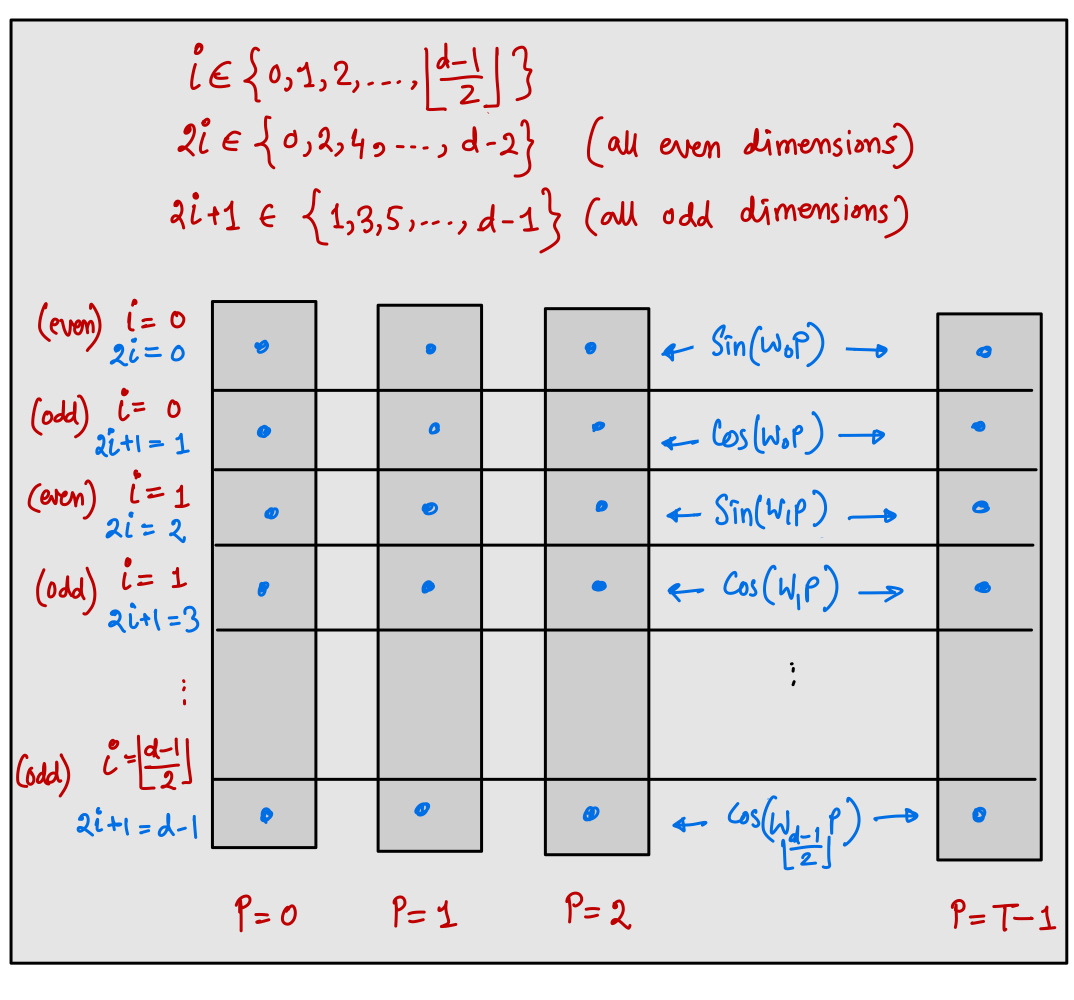 i ∈ {0,1,2,....,⌊d-1/2⌋}
2i ∈ {0,2,4,...,d-2} (all even dimensions)
2i+1 ∈ {1,3,5,...,d-1} (all odd dimensions)
(even) i= 0
2i=0
← Sin(W₀P) →
(odd) i= 0
2i+1=1
← Cos(W₀P) →
(even) i=1
2i=2
← Sin(W₁P) →
(odd) i=1
2i+1=3
← Cos(W₁P) →
⋮ ⋮
(odd) i=⌊d-1/2⌋
2i+1=d-1
← Cos(W⌊d-1/2⌋P) →
P=0 P=1 P=2 P=T-1